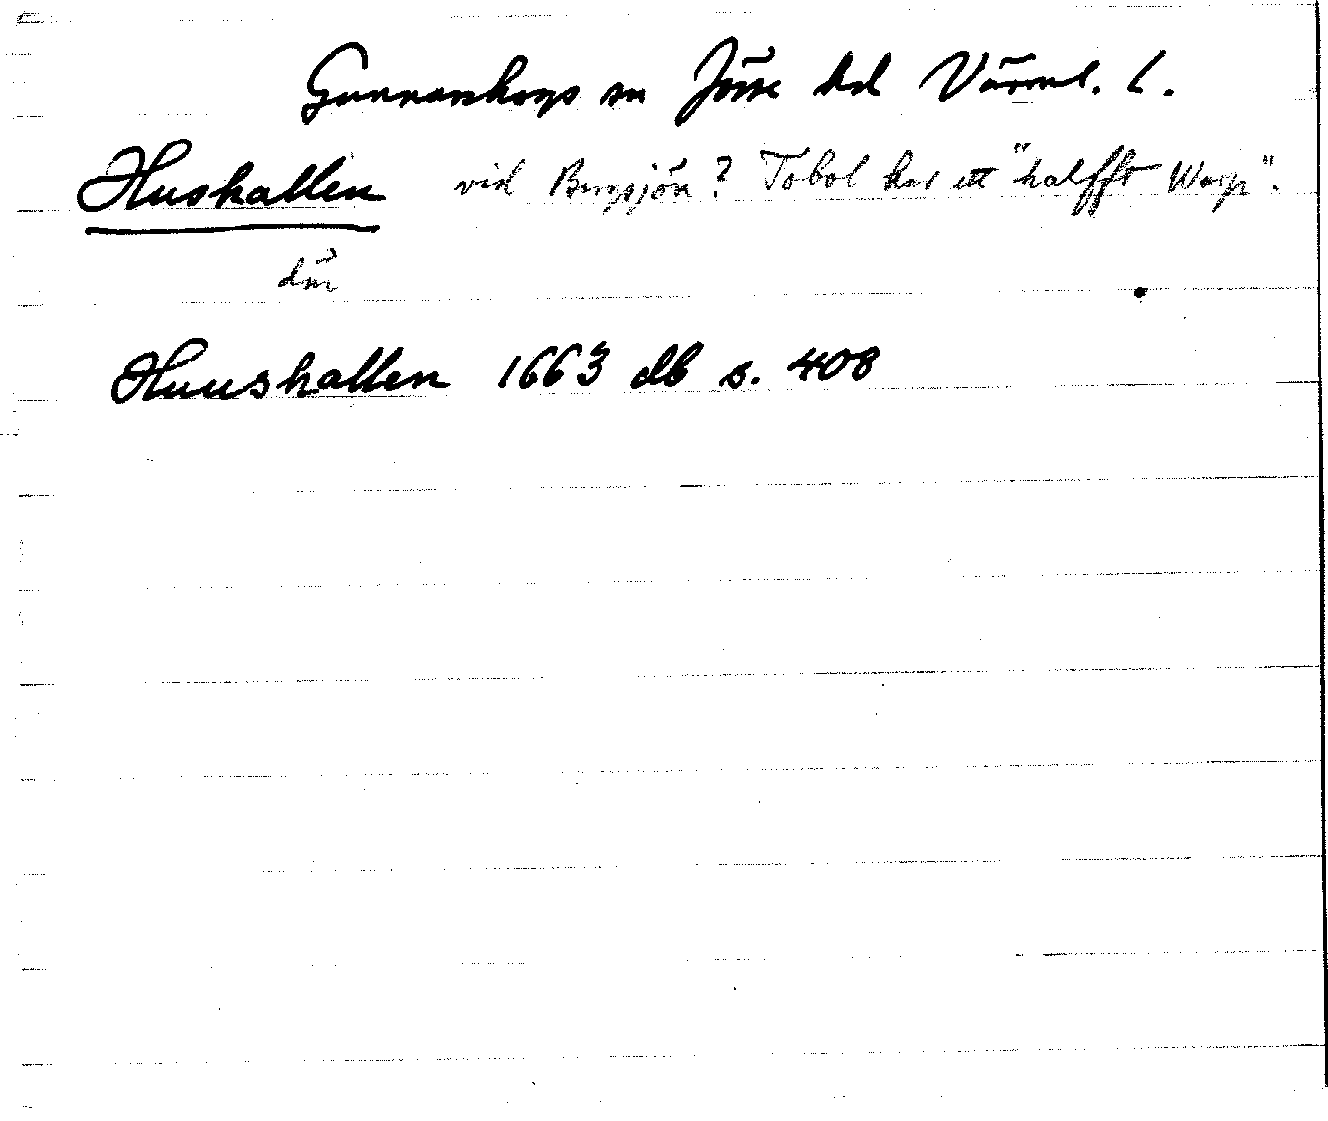 Gunnarskogs sn Jösse hd Värml. l.
Hushallen vid Bergsjön? Tobol har ett "halfft Warp".
där
Huushallen 1663 db s. 408